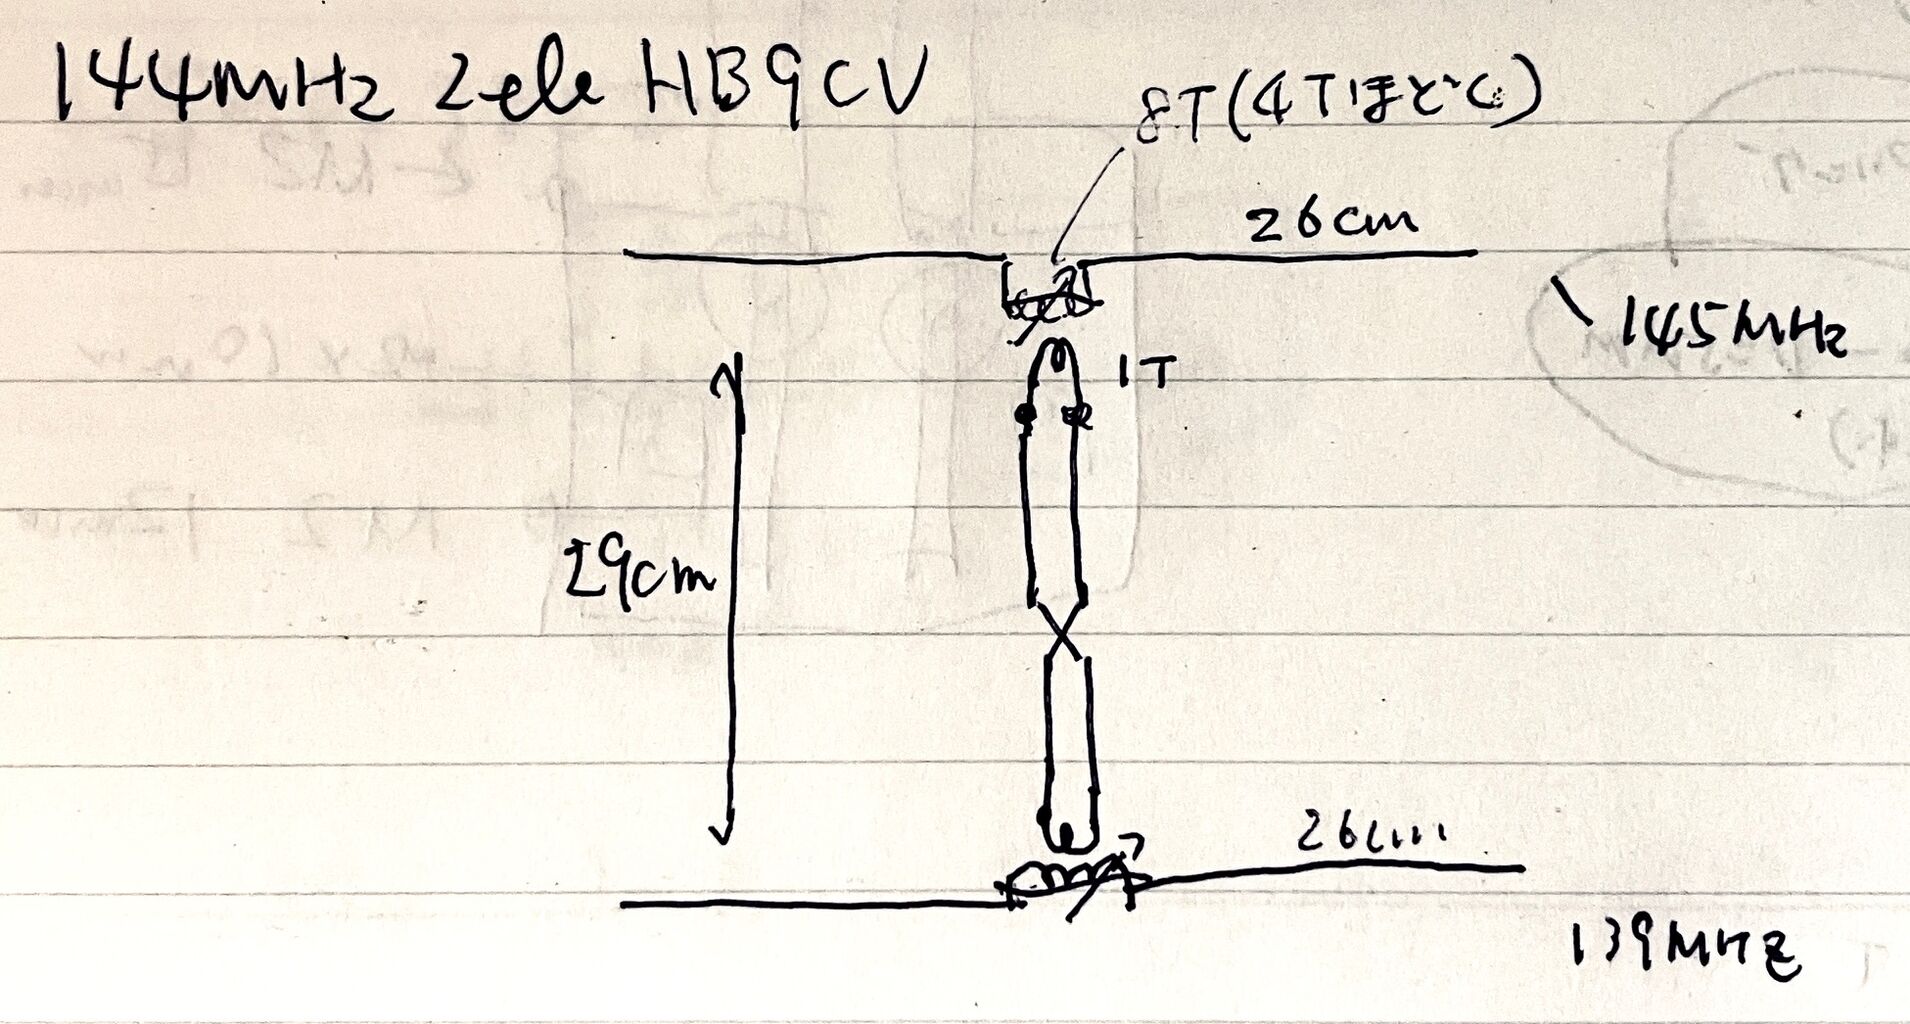 144MHz 2ele HB9CV
8T(4Tほどく)
26cm
145MHz
1T
29cm
26cm
139MHz